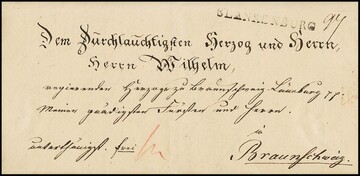 BLANKENBURG
Dem Durchlauchtigsten Herzog und Herrn,
Herrn Wilhelm,
regierenden Herzoge zu Braunschweig Lüneburg pp.
Meinem gnädigsten Fürsten und Herrn.
in
unterthänigst. frei
Braunschweig.